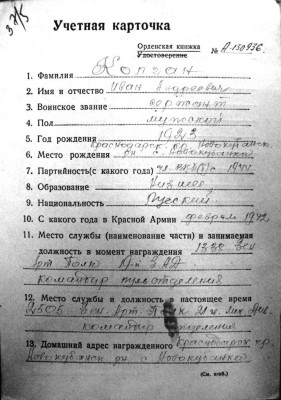 Учетная карточка
Орденская книжка
Удостоверение № А-150936.
1. Фамилия
2. Имя и отчество Иван Андреевич
3. Воинское звание сержант
4. Пол мужской
5. Год рождения 1923
Краснодарск. кр. Новокубанск.
6. Место рождения рн с Новокубанка
7. Партийность(с какого года) чл. ВКП(б) с 1944.
8. Образование низшее.
9. Национальность Русский.
10. С какого года в Красной Армии февраль 1942
11. Место службы (наименование части) и занимаемая
должность в момент награждения 1338 Зен
Арт Полк
командир отделения
12. Место службы и должность в настоящее время
Зен. Арт. 21
командир отделения
13. Домашний адрес награжденного Краснодарск. кр.
Новокубанск рн. с Новокубанка
(См. н/об.)